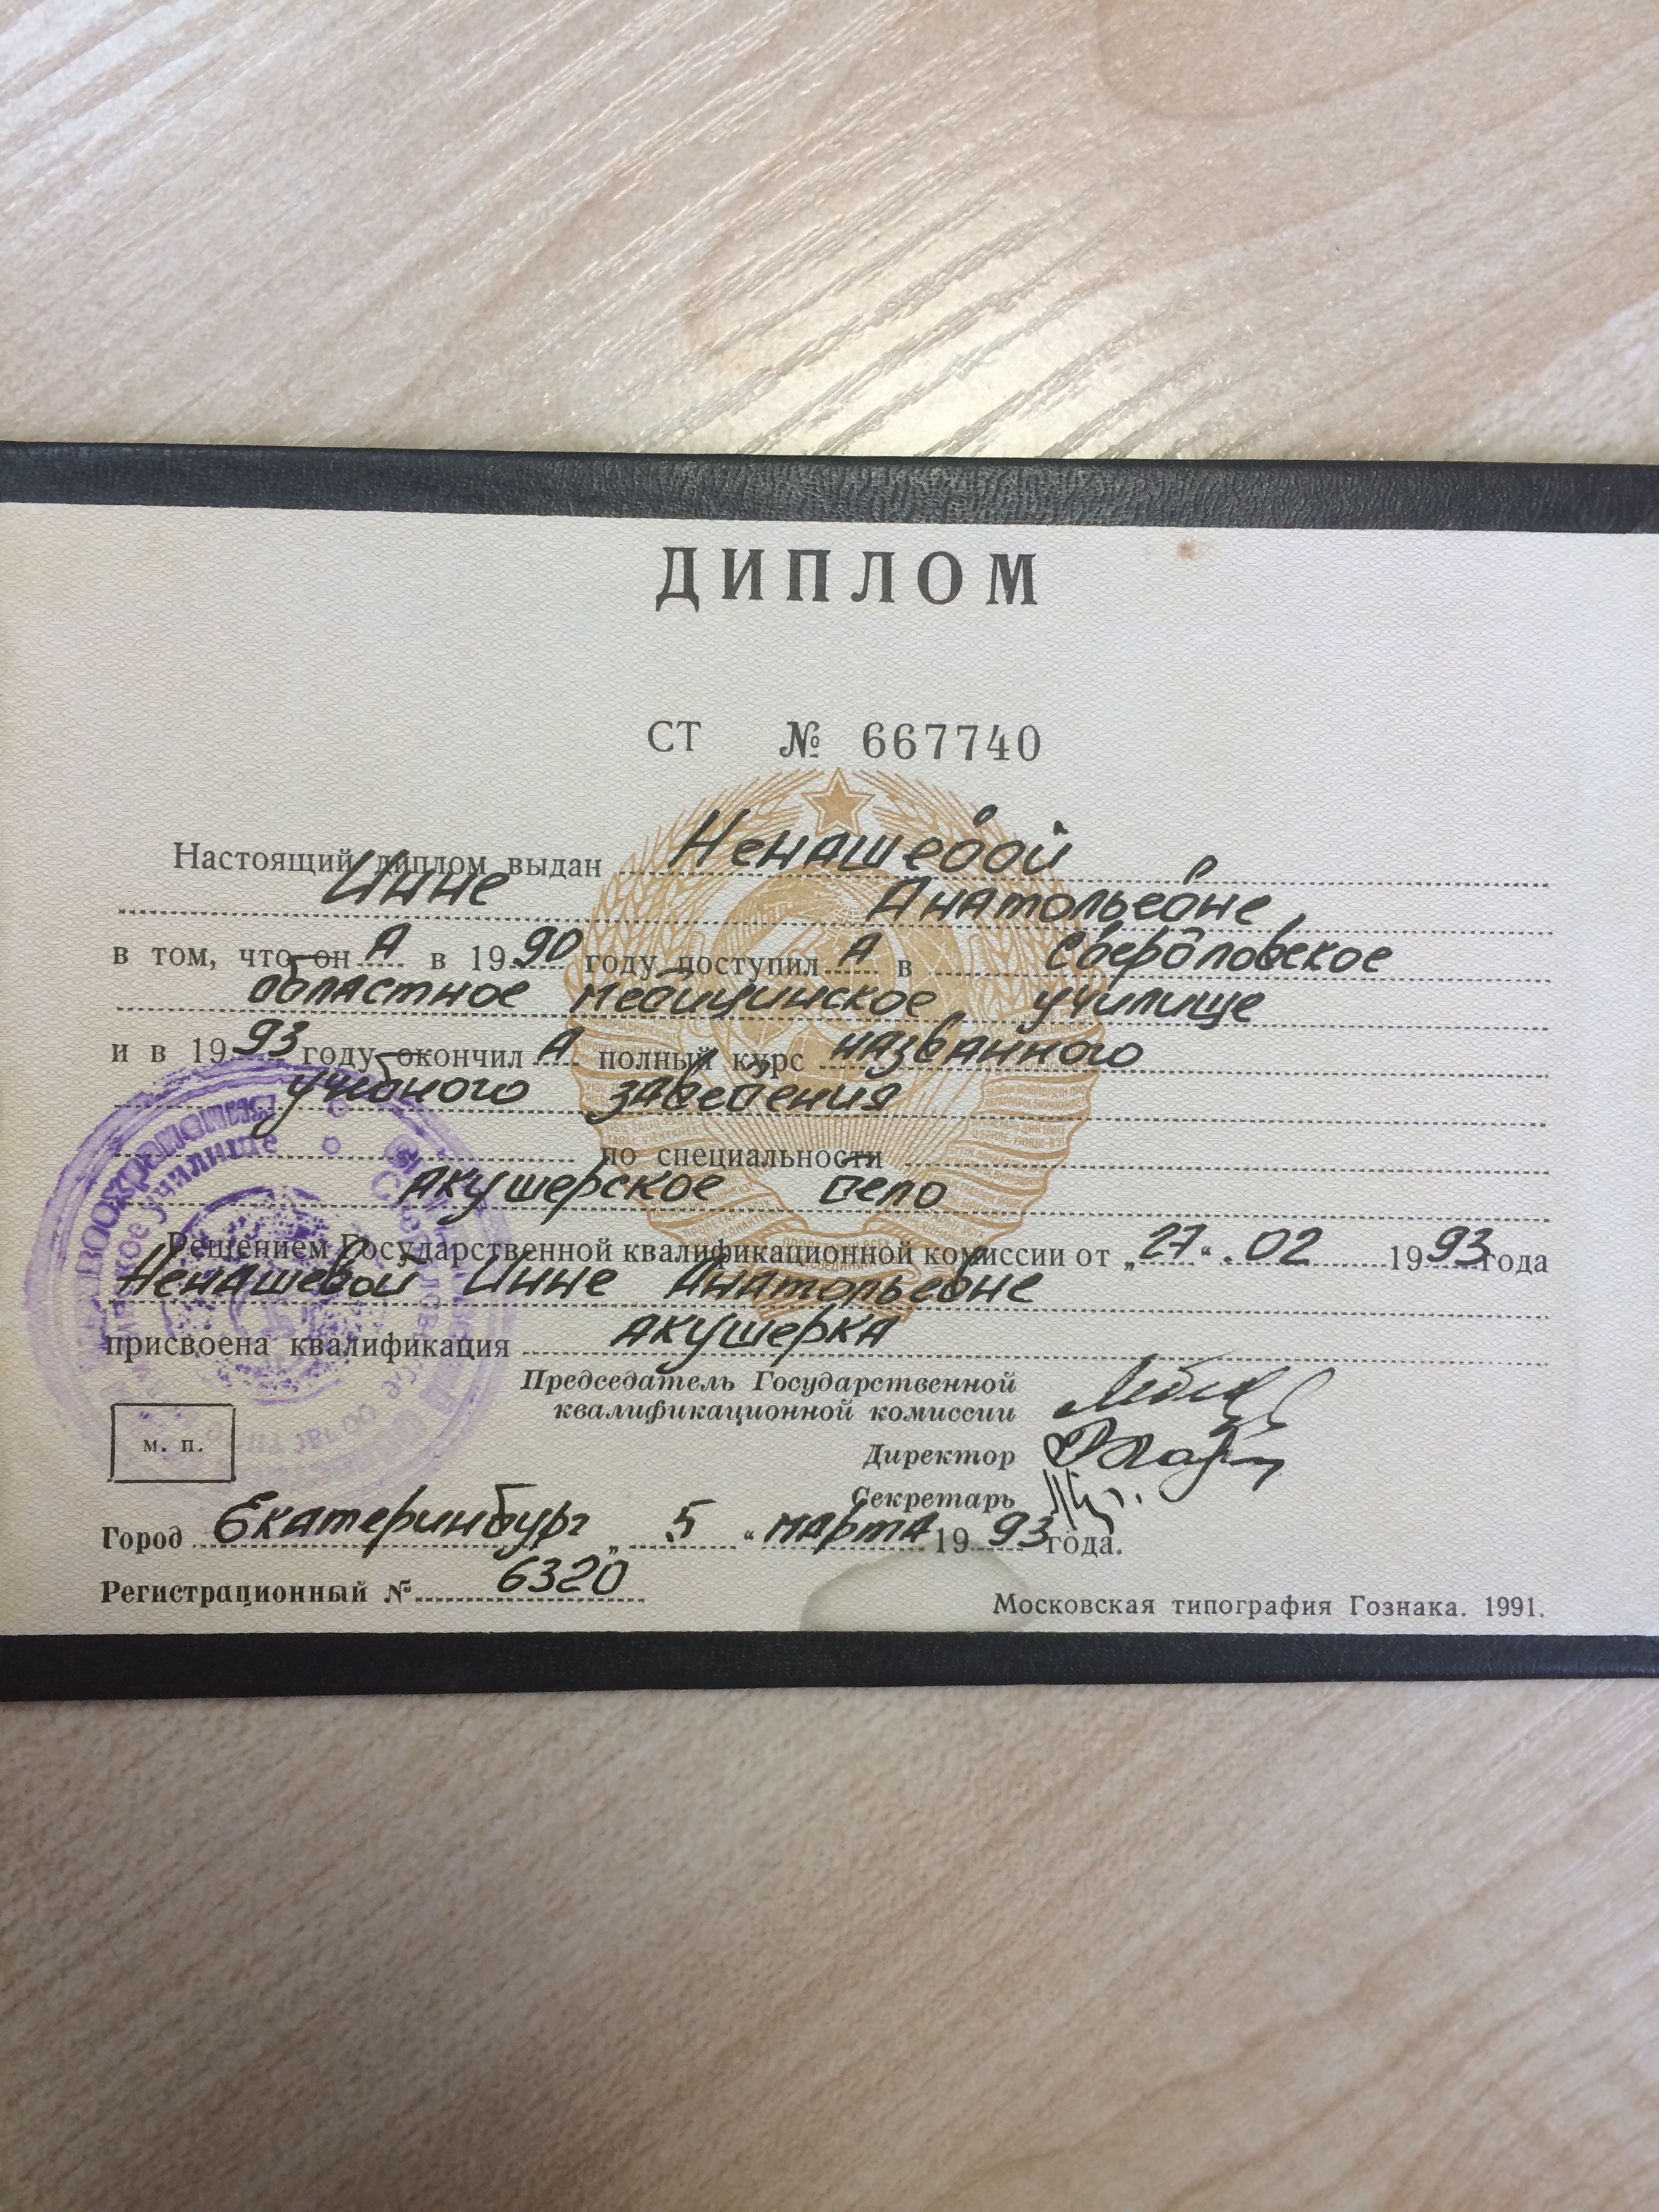 ДИПЛОМ
СТ № 667740
Настоящий диплом выдан Ненашевой
Инне Анатольевне,
в том, что он А в 1990 году поступил А в Свердловское
областное медицинское училище
и в 1993 году окончил А полный курс названного
учебного заведения
по специальности
акушерское дело
Решением Государственной квалификационной комиссии от „27“ 02 1993 года
Ненашевой Инне Анатольевне
присвоена квалификация акушерка
Председатель Государственной
квалификационной комиссии
Директор
М. П.
Секретарь
Город Екатеринбург „ 5 “ марта 1993 года.
Регистрационный № 6320
Московская типография Гознака. 1991.